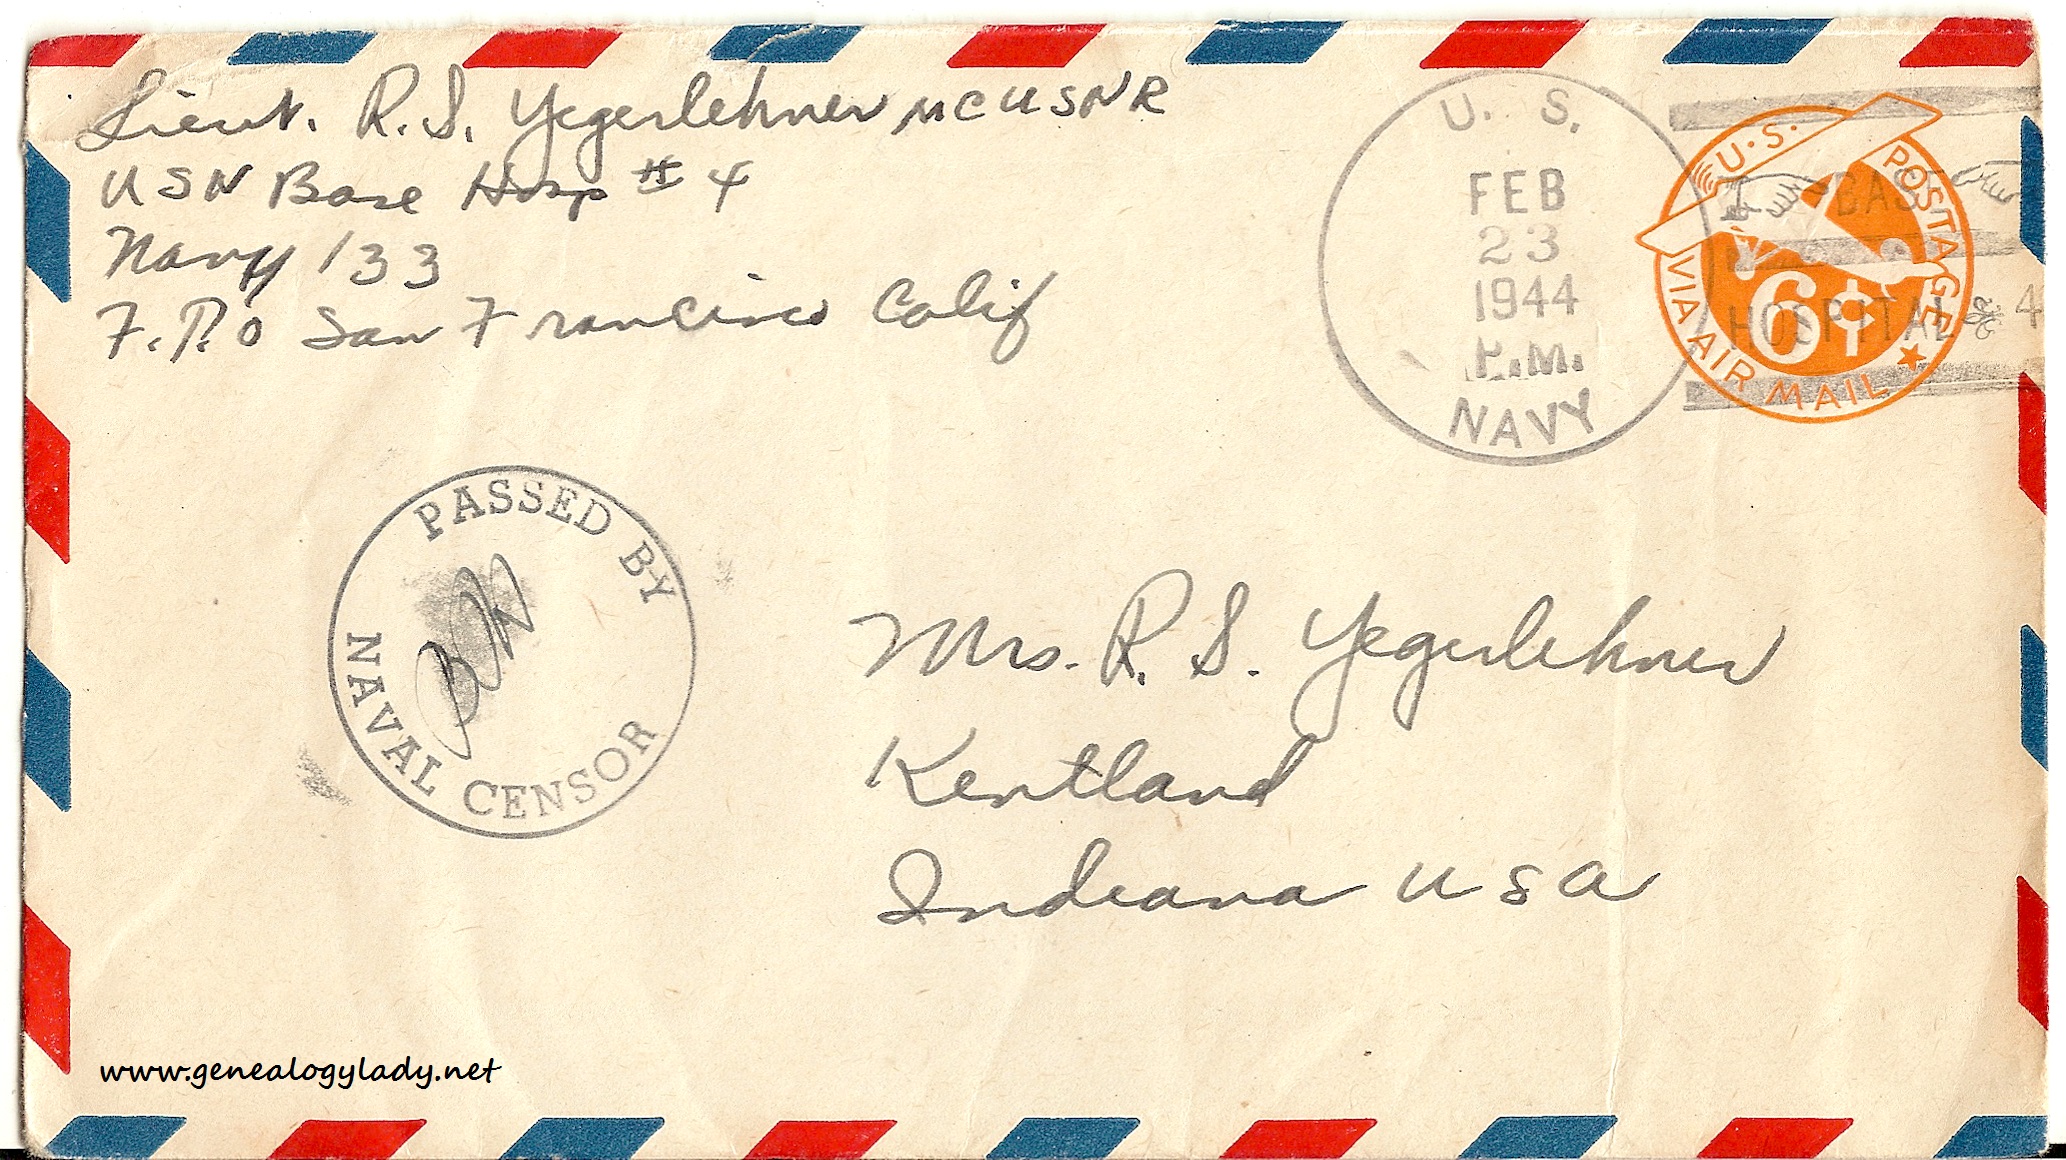 Lieut. R. S. Yegerlehner MC USNR
USN Base Hosp # 4
Navy 133
F.P.O San Francisco Calif
U. S.
FEB
23
1944
P.M.
NAVY
BASE
HOSPITAL # 4
U.S. POSTAGE
6¢
VIA AIR MAIL
PASSED BY
NAVAL CENSOR
Mrs. R. S. Yegerlehner
Kentland
Indiana USA
www.genealogylady.net